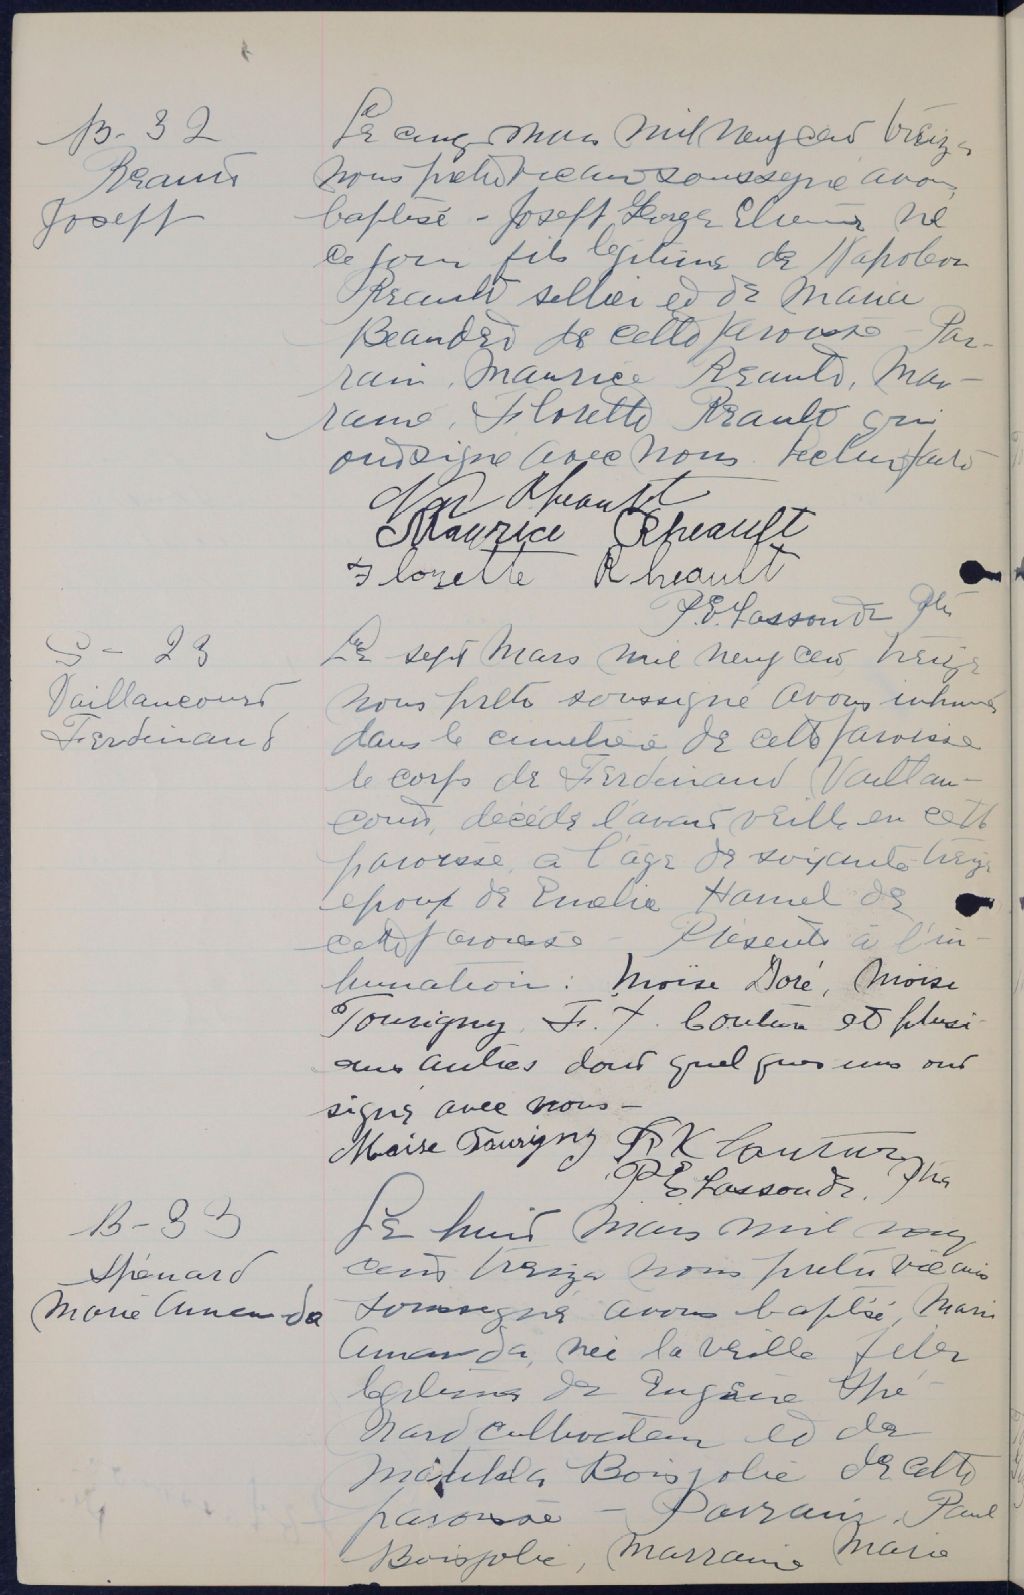 B-32
Reault
Joseph
Le cinq Mars mil neuf cent treize
nous prêtre vicaire soussigné avons
baptisé - Joseph George Etienne né
ce jour fils légitime de Napoleon
Reault sellier et de Maria
Beaudet de cette paroisse - Par-
rain, Maurice Reault, Mar-
raine, Florette Reault qui
ont signé avec nous. Lecture faite
Nap Rheault
Maurice Rheault
Florette Rheault
P.E. Lassonde Ptre
S-23
Vaillancourt
Ferdinand
Le sept Mars mil neuf cent treize
nous prêtre soussigné avons inhumé
dans le cimetière de cette paroisse
le corps de Ferdinand Vaillan-
court, décédé l'avant veille en cette
paroisse, à l'âge de soixante treize
époux de Emelie Hamel de
cette paroisse - Présents à l'in-
humation: Moïse Doré, Moïse
Tourigny, F. X. Couture et plusi-
eurs autres dont quelques uns ont
signé avec nous -
Moise Tourigny F X Couture
P.E. Lassonde, Ptre
B-33
Spénard
Marie Amanda
Le huit Mars mil neuf
cent treize nous prêtre vicaire
soussigné avons baptisé, Marie
Amanda, née la veille fille
légitime de Eugène Spé-
nard cultivateur et de
Matilda Boisjolie de cette
paroisse - Parrain, Paul
Boisjolie, Marraine Marie